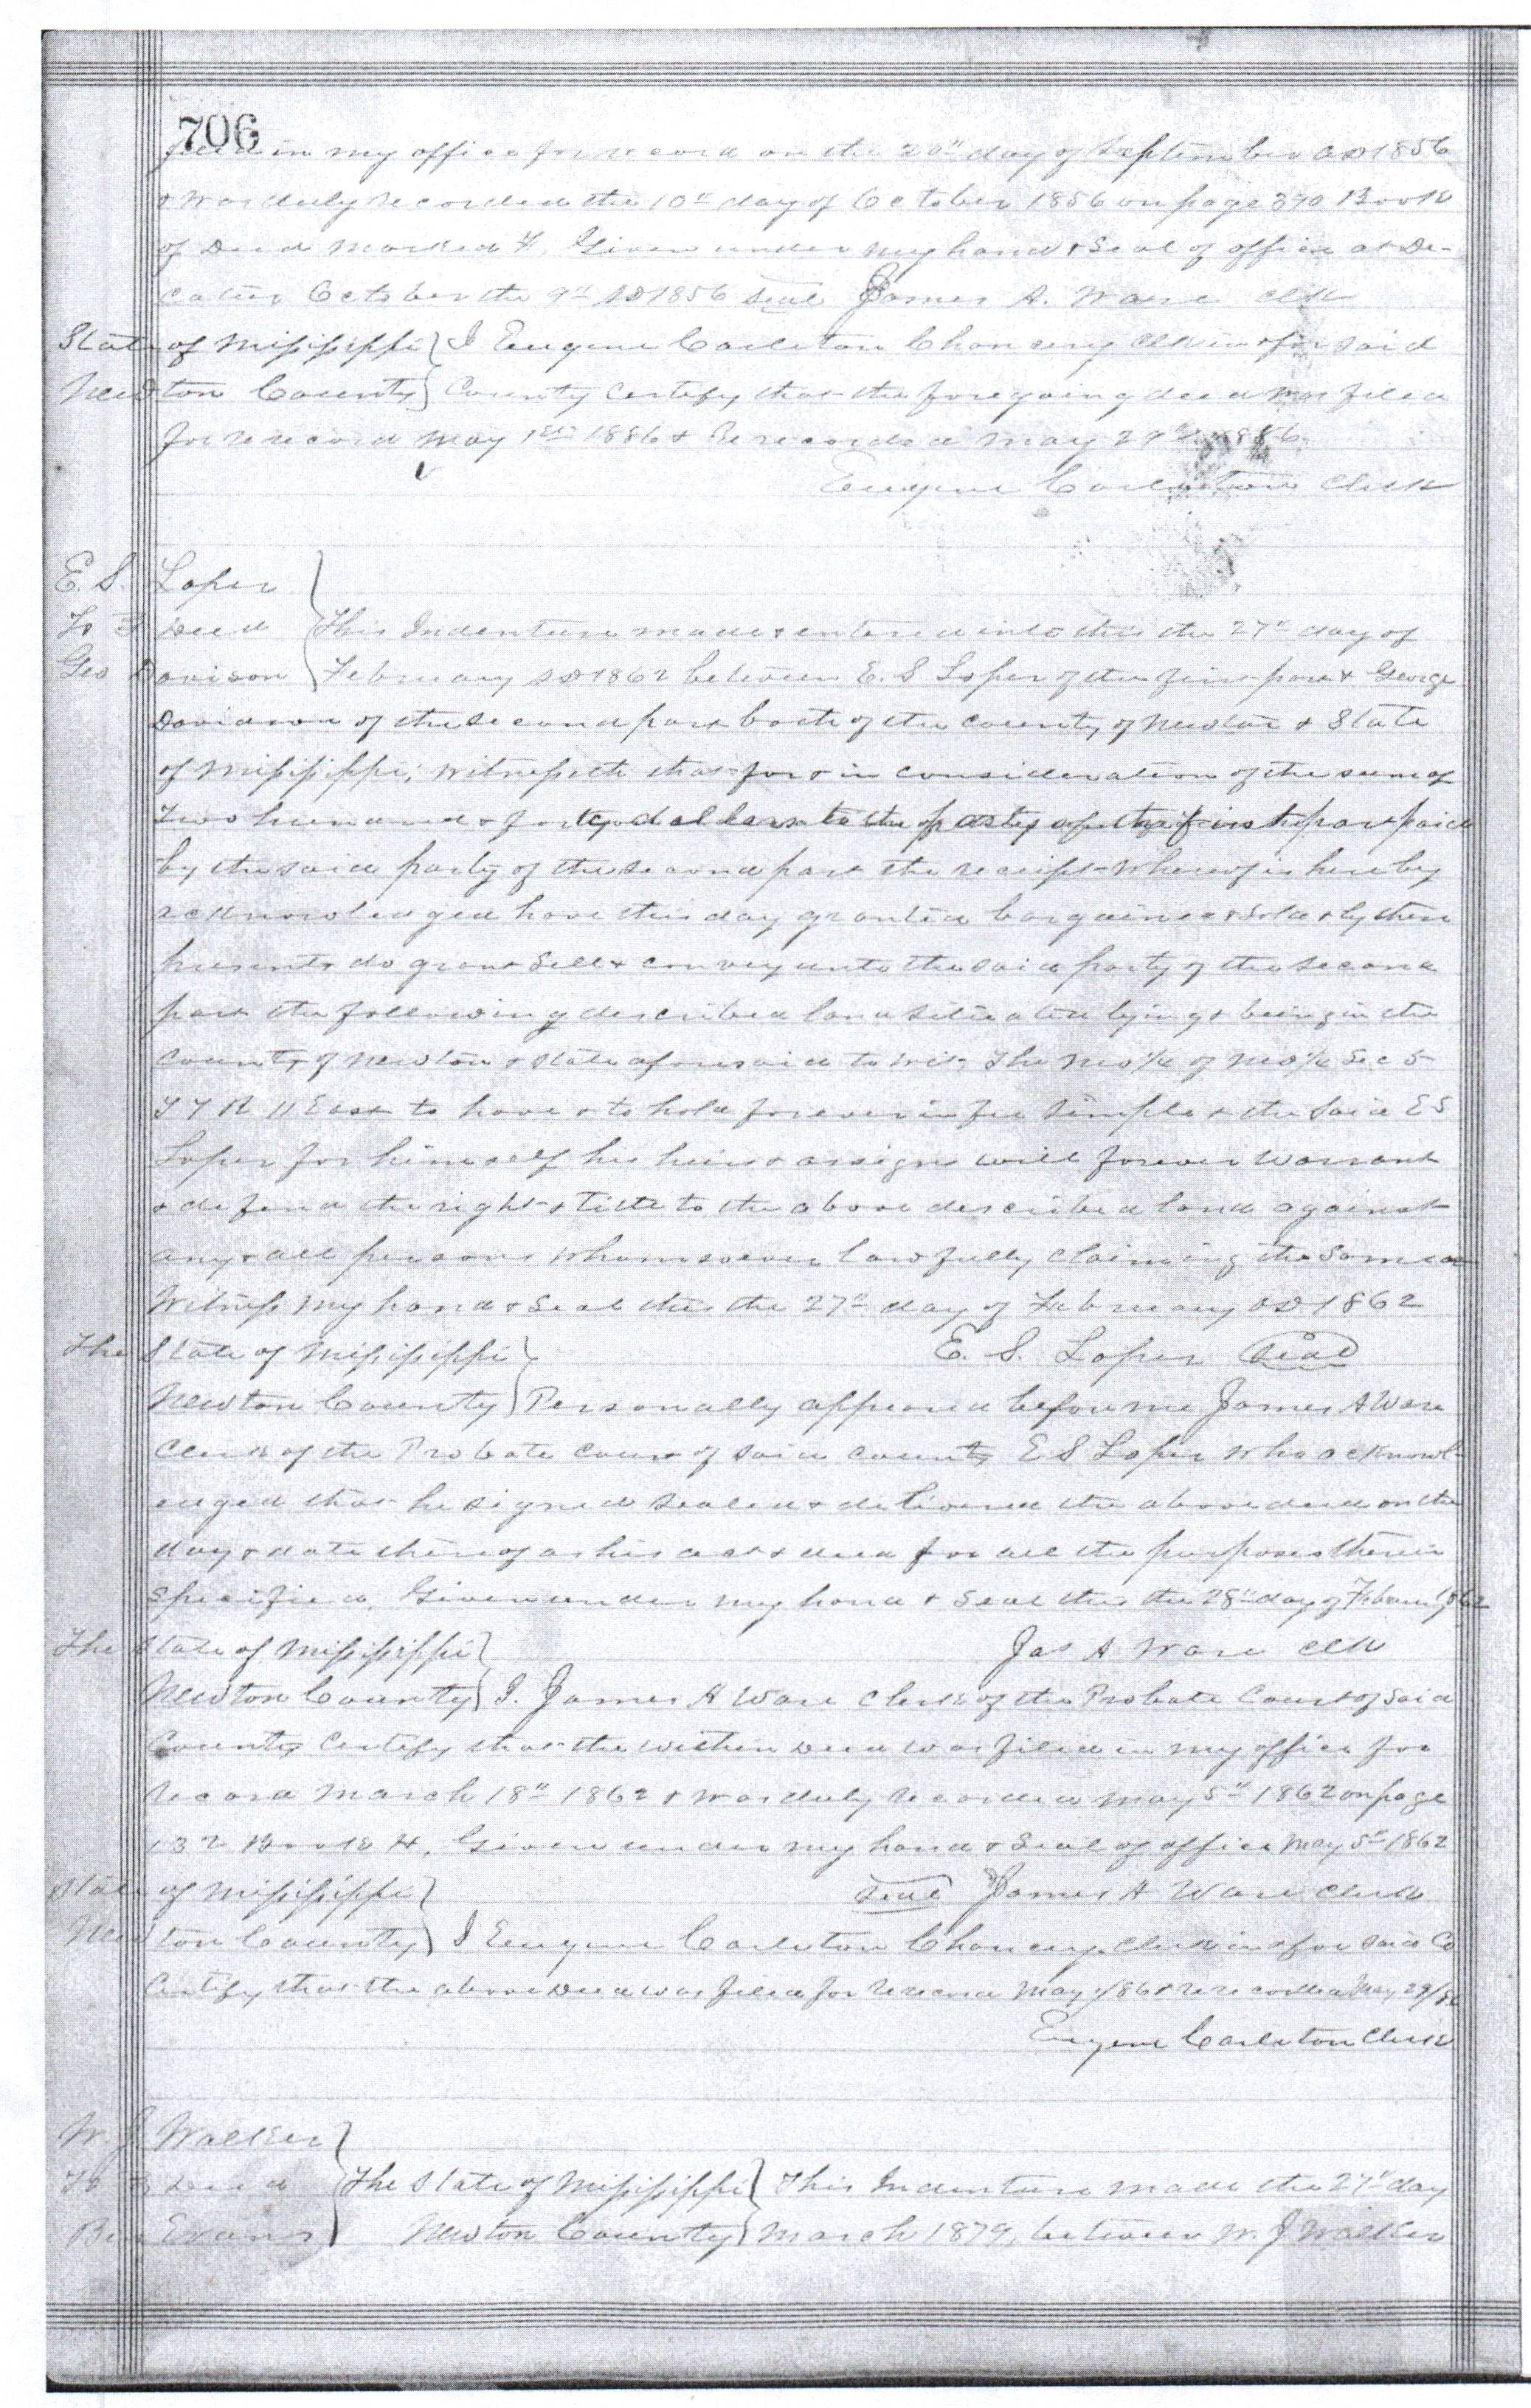 706
filed in my office for record on the 20th day of September AD 1856
& was duly recorded the 10th day of October 1856 on page 390 Book
of Deed marked H. Given under my hand & Seal of office at De-
catur October the 9th AD 1856 Seal James A. Ware Clk
State of Mississippi } I Eugene Carleton Chancery Clk in & for said
Newton County } County certify that the foregoing deed was filed
for rerecord May 1st 1886 & Rerecorded May 29th 1886.
Eugene Carleton Clerk
E. S. Loper
To } Deed } This Indenture made & entered into this the 27th day of
Geo Davison } February AD 1862 between E. S Loper of the first part & George
Davidson of the second part both of the county of Newton & State
of Mississippi; witnesseth that for & in consideration of the sum of
Two hundred & forty dollars to the party of the first part paid
by the said party of the second part the receipt whereof is hereby
acknowledged have this day granted bargained & sold & by these
presents do grant Sell & convey unto the said party of the second
part the following described land situated lying & being in the
county of Newton & State aforesaid to wit; The Sec 5
T 7 R 11 East to have & to hold forever in fee simple & the said E S
Loper for himself his heirs & assigns will forever warrant
& defend the right & title to the above described land against
any & all persons whomsoever lawfully claiming the same
Witness my hand & Seal this the 27th day of February AD 1862
The State of Mississippi } E. S. Loper Seal
Newton County } Personally appeared before me James A Ware
Clerk of the Probate court of said county E S Loper who acknowl-
edged that he signed sealed & delivered the above deed on the
day & date thereof as his act & deed for all the purposes therein
specified. Given under my hand & Seal this the 28th day of February 1862
The State of Mississippi } Jas A Ware Clk
Newton County } I. James A Ware Clerk of the Probate Court of said
County Certify that the within Deed was filed in my office for
record March 18th 1862 & was duly recorded May 5th 1862 on page
132 Book H. Given under my hand & Seal of office May 5th 1862
State of Mississippi } Seal James A Ware Clerk
Newton County } I Eugene Carleton Chancery Clerk in & for said Co
Certify that the above Deed was filed for rerecord May 1/86 & rerecorded May 29/86
Eugene Carleton Clerk
W. J. Walker
To } Deed } The State of Mississippi } This Indenture made the 27th day
Ben Evans } Newton County } March 1879, between W. J Walker